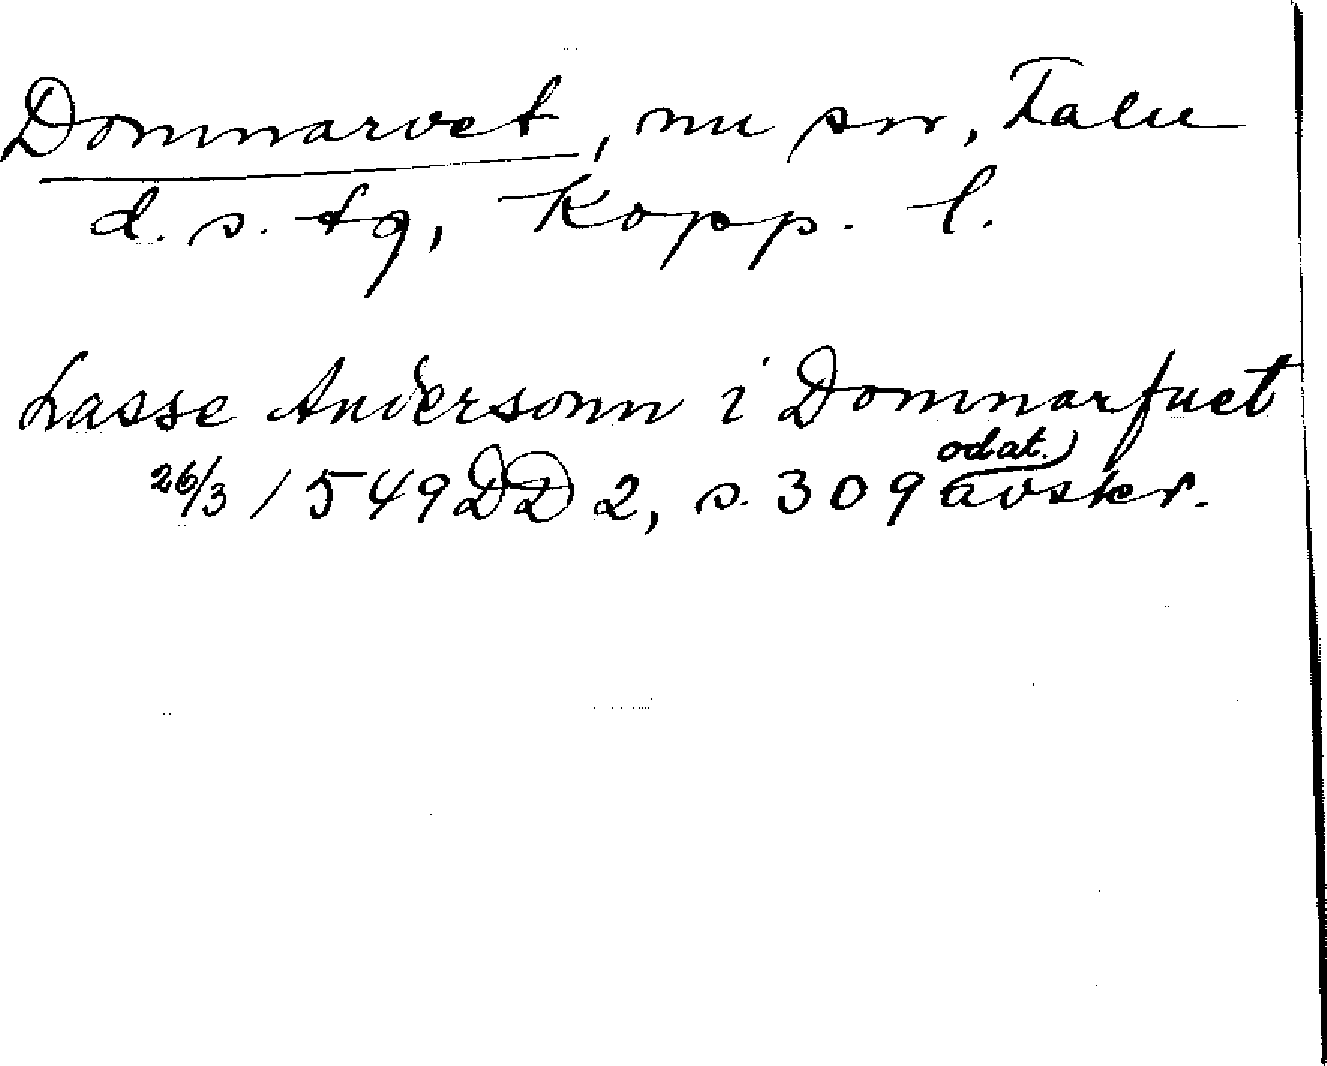 Domnarvet, nu sn, Falu
d. s. tg, Kopp. l.
Lasse Andersonn i Domnarfuet
26/3 1549 DD 2, s. 309 odat. avskr.